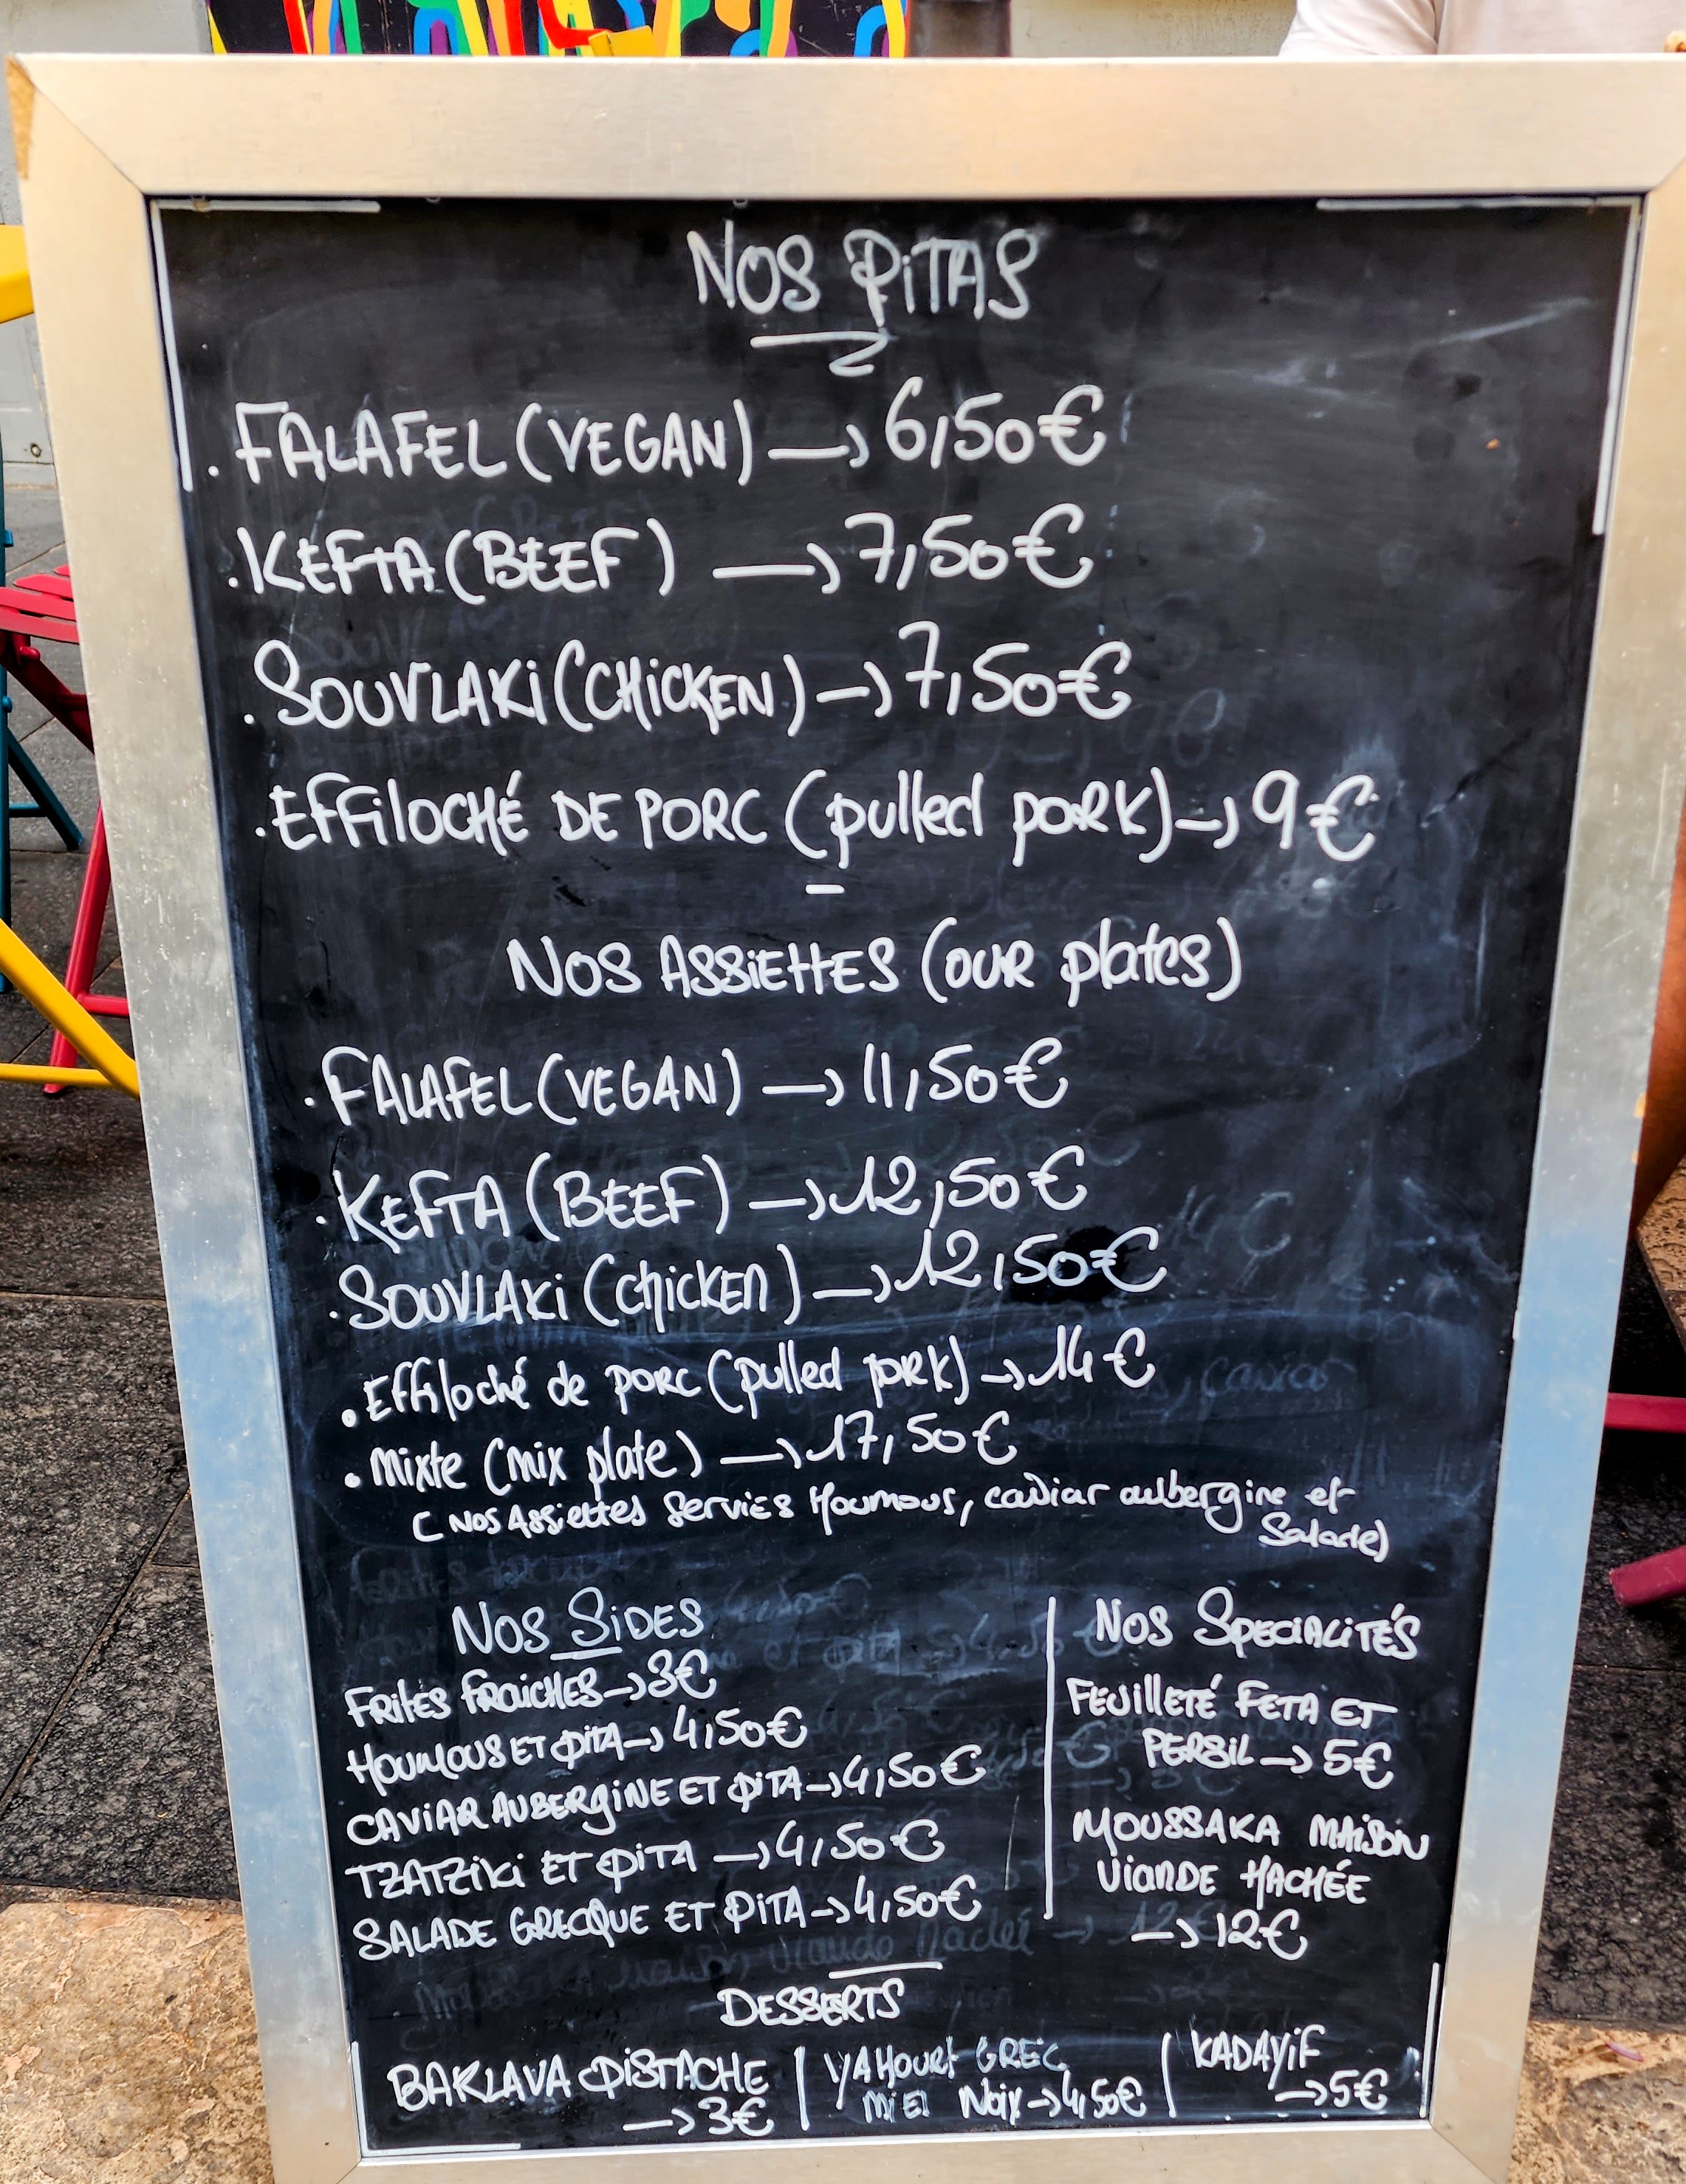 NOS PITAS
. FALAFEL (VEGAN) → 6,50€
. KEFTA (BEEF) → 7,50€
. SOUVLAKI (CHICKEN) → 7,50€
. EFFILOCHÉ DE PORC (pulled pork) → 9€
NOS ASSIETTES (our plates)
. FALAFEL (VEGAN) → 11,50€
. KEFTA (BEEF) → 12,50€
. SOUVLAKI (chicken) → 12,50€
. Effiloché de porc (pulled pork) → 14€
. Mixte (mix plate) → 17,50€
(Nos Assiettes servies Houmous, caviar aubergine et
salade)
NOS SIDES
FRITES FRAICHES → 3€
HOUMOUS ET PITA → 4,50€
CAVIAR AUBERGINE ET PITA → 4,50€
TZATZIKI ET PITA → 4,50€
SALADE GRECQUE ET PITA → 4,50€
NOS SPECIALITÉS
FEUILLETÉ FETA ET
PERSIL → 5€
MOUSSAKA MAISON
VIANDE HACHÉE
→ 12€
DESSERTS
BAKLAVA PISTACHE
→ 3€
YAHOURT GREC
MIEL NOIX → 4,50€
KADAYIF
→ 5€